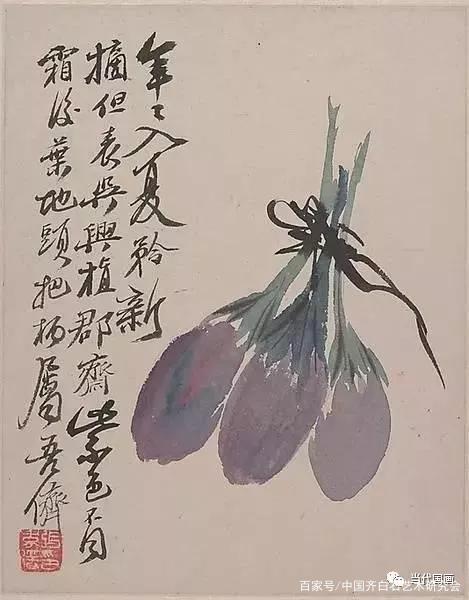 年〻入夏矜新
摘但表吳興植郡齋紫色不同
霜後葉地頭把柄屬吾儕
当代国画
百家号/中国齐白石艺术研究会